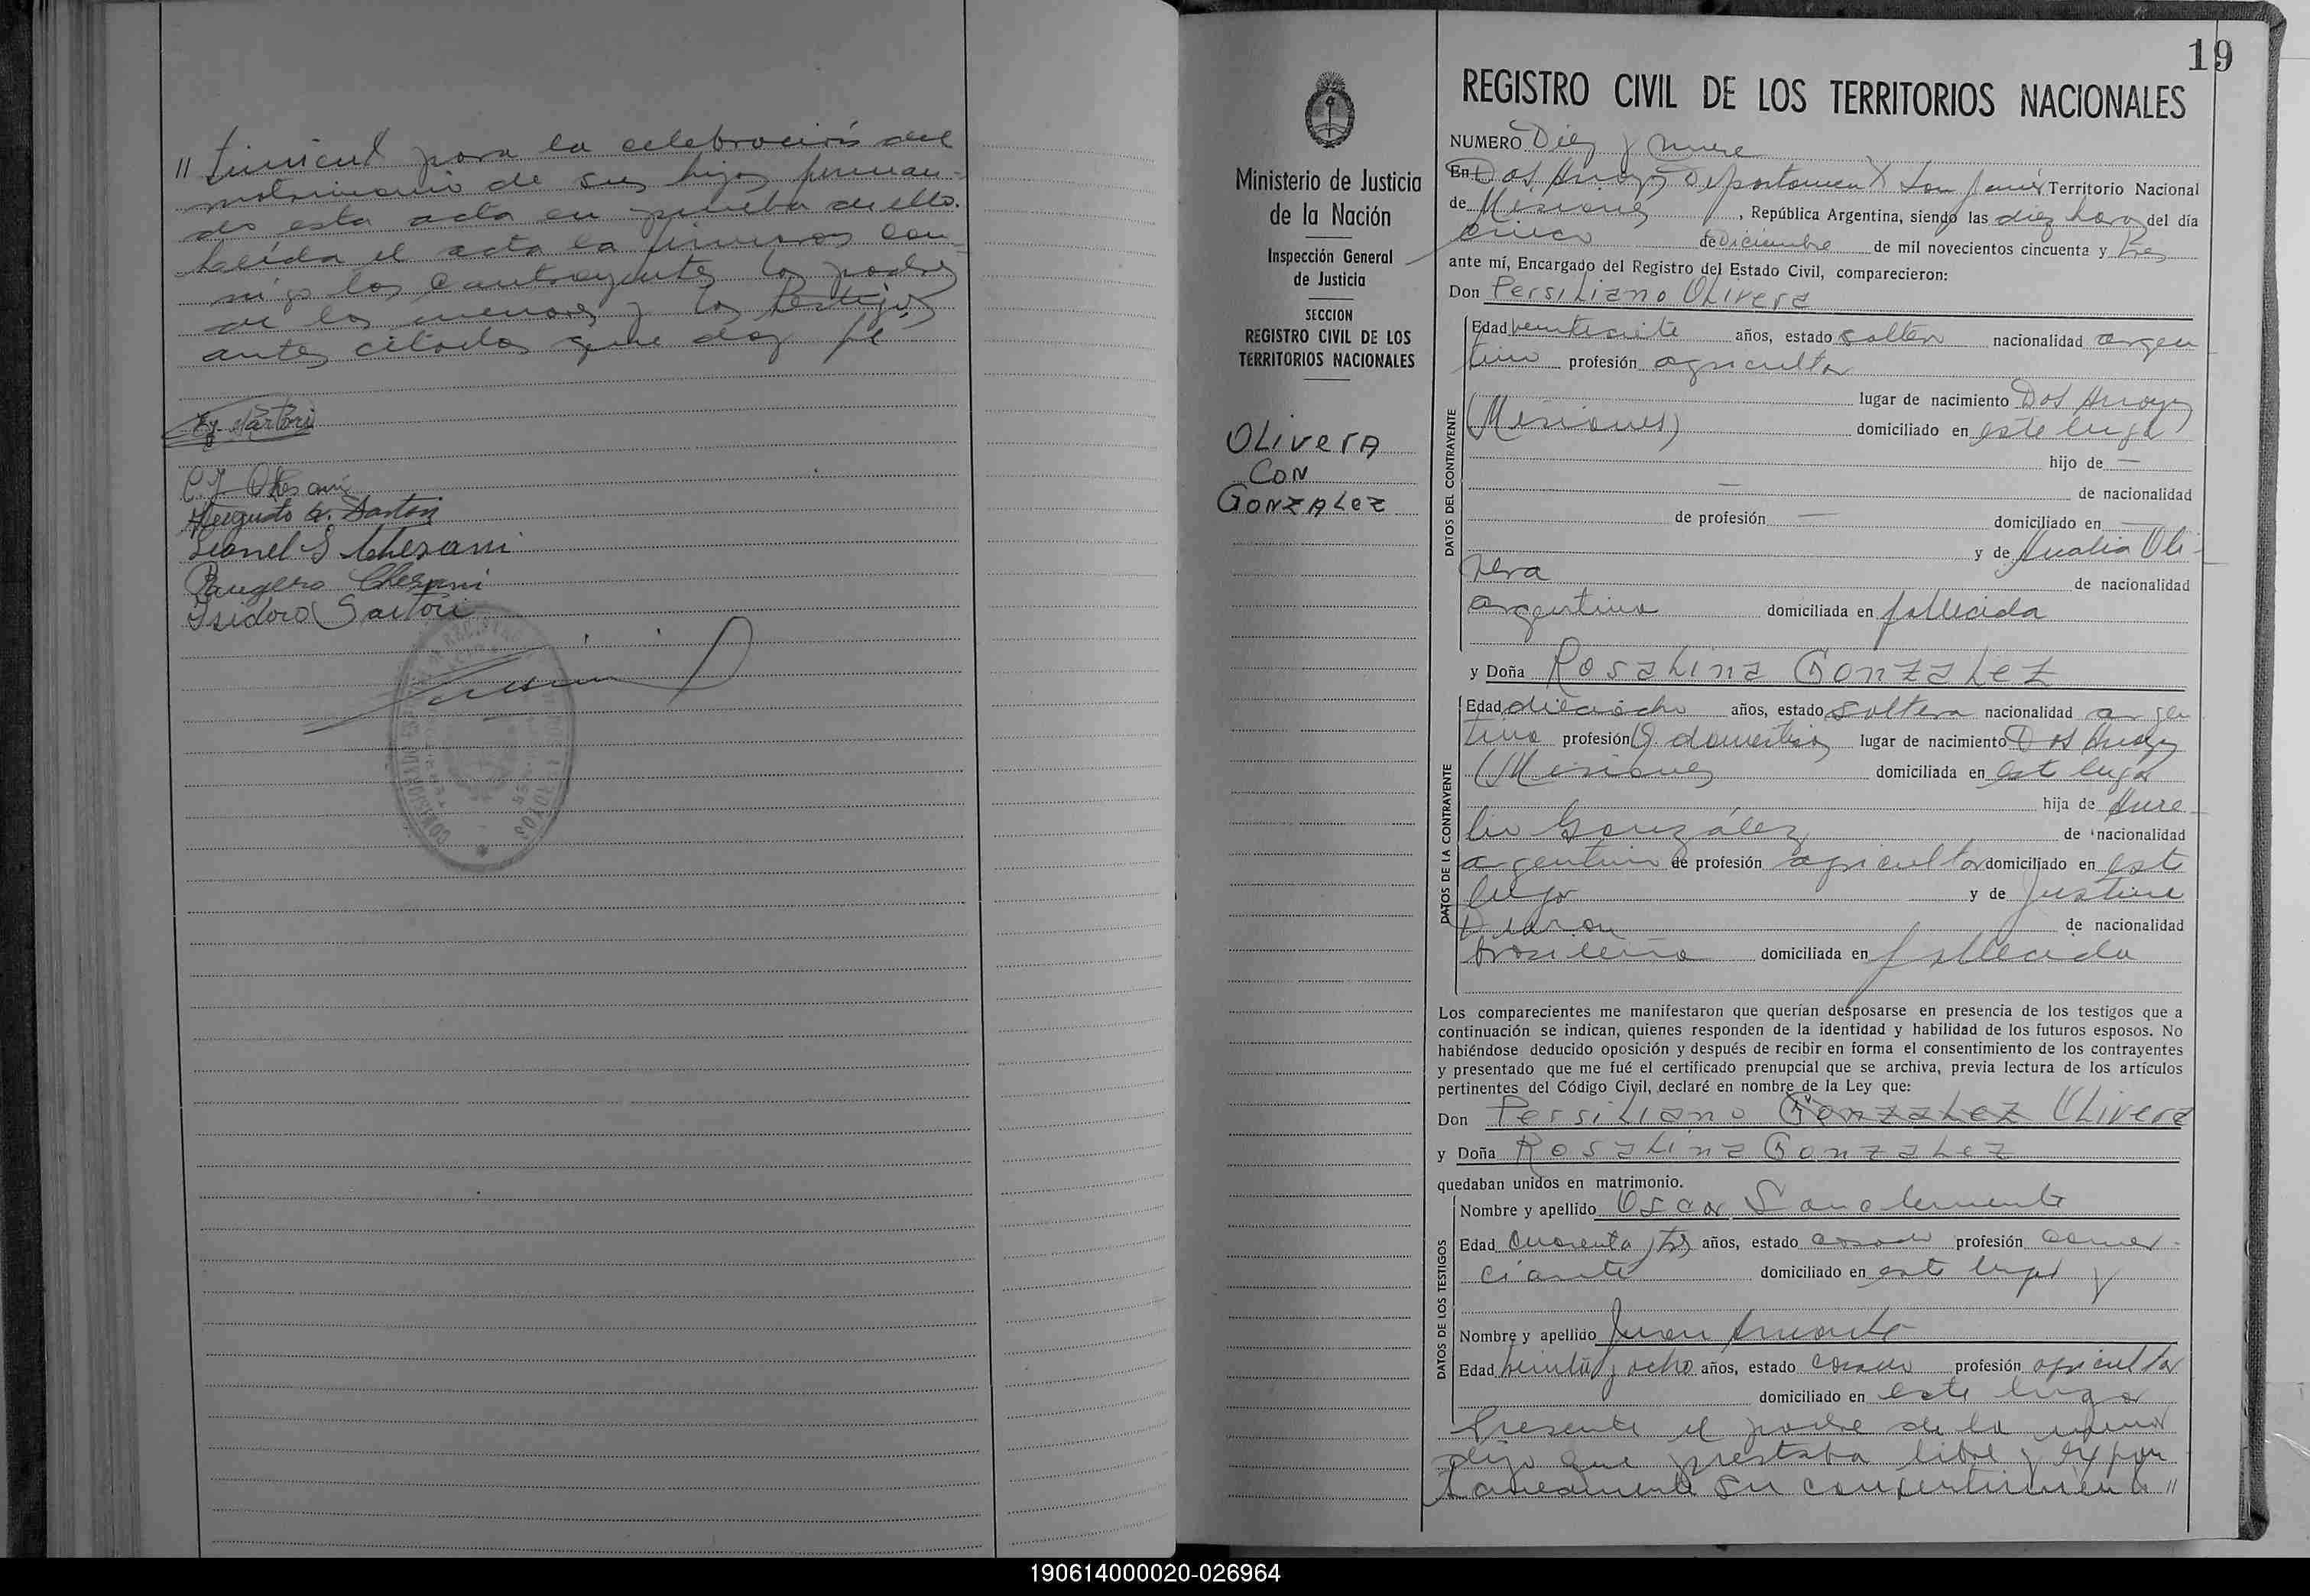 " timient para la celebración del
matrimonio de sus hijos firman-
do esta acta en prueba de ello.
Leída el acta la firmaron con-
migo los contrayentes los padres
de los menores y los testigos
antes citados que doy fé
Augusto Sartori
Leonel S Chesani
Ruugero Chesani
Isidoro Sartori
19
Ministerio de Justicia
de la Nación
Inspección General
de Justicia
SECCION
REGISTRO CIVIL DE LOS
TERRITORIOS NACIONALES
OLIVERA
CON
GONZALEZ
REGISTRO CIVIL DE LOS TERRITORIOS NACIONALES
NUMERO Diez y nueve
En Dos Arroyos Departamento San Javier Territorio Nacional
de Misiones, República Argentina, siendo las diez horas del día
cinco de Diciembre de mil novecientos cincuenta y tres
ante mí, Encargado del Registro del Estado Civil, comparecieron:
Don Persiliano Olivera
DATOS DEL CONTRAYENTE
Edad veintisiete años, estado soltero nacionalidad argen
tino profesión agricultor
lugar de nacimiento Dos Arroyos
(Misiones) domiciliado en este lugar
hijo de —
— de nacionalidad
de profesión — domiciliado en —
y de Analia Oli-
vera
de nacionalidad
argentina domiciliada en fallecida
y Doña Rosalina Gonzalez
DATOS DE LA CONTRAYENTE
Edad dieciocho años, estado soltera nacionalidad argen
tina profesión Q. domesticos lugar de nacimiento Dos Arroyos
(Misiones domiciliada en este lugar
hija de Aure-
lio González de nacionalidad
argentino de profesión agricultor domiciliado en este
lugar y de Justina
de nacionalidad
brasileña domiciliada en fallecida
Los comparecientes me manifestaron que querían desposarse en presencia de los testigos que a
continuación se indican, quienes responden de la identidad y habilidad de los futuros esposos. No
habiéndose deducido oposición y después de recibir en forma el consentimiento de los contrayentes
y presentado que me fué el certificado prenupcial que se archiva, previa lectura de los artículos
pertinentes del Código Civil, declaré en nombre de la Ley que:
Don Persiliano Gonzalez Olivera
y Doña Rosalina Gonzalez
quedaban unidos en matrimonio.
DATOS DE LOS TESTIGOS
Nombre y apellido Oscar Sanclemente
Edad cuarenta y tres años, estado casado profesión comer-
ciante domiciliado en este lugar y
Nombre y apellido Juan
Edad veinte y ocho años, estado casado profesión agricultor
domiciliado en este lugar
Presente el padre de la menor
dijo que prestaba libre y expon
taneamente su consentimiento "
190614000020-026964